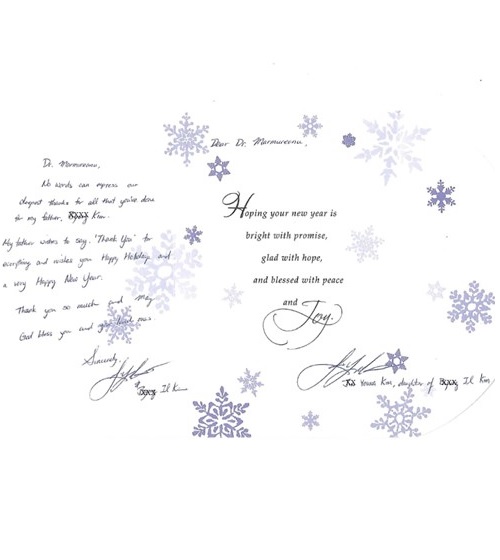 Dr. Marmureanu,
No words can express our
deepest thanks for all that you've done
for my father, Kim.
My father wishes to say "Thank You" for
everything and wishes you Happy Holidays and
a very Happy New Year.
Thank you so much and may
God bless you and your
Sincerely,
Il Kim
Dear Dr. Marmureanu,
Hoping your new year is
bright with promise,
glad with hope,
and blessed with peace
and Joy.
Kim, daughter of Il Kim